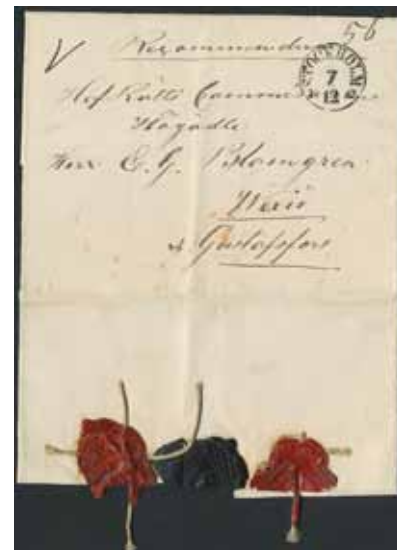 56
Recommenderas
STOCKHOLM
7
12
Hof Rätts Commissarien
Högädle
Herr E. G. Blomgren
Wexiö
Gustafsfors